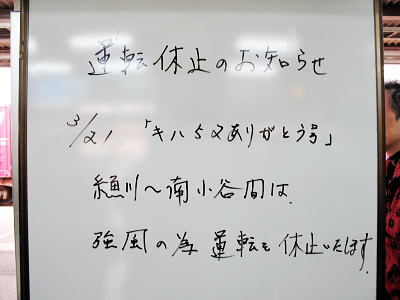 運転休止のお知らせ
3/21 「キハ52ありがとう号」
糸魚川〜南小谷間は、
強風の為 運転を休止いたします。